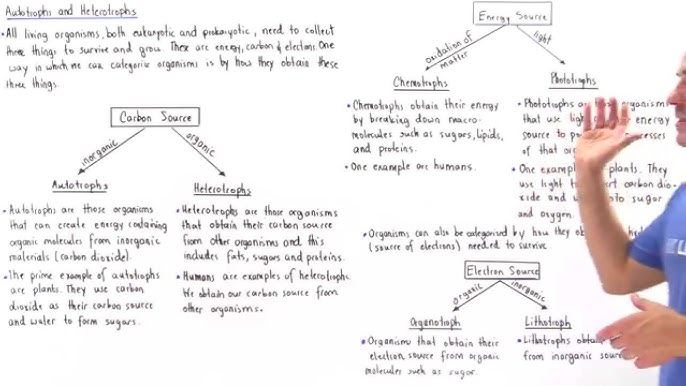 Autotrophs and Heterotrophs
• All living organisms, both eukaryotic and prokaryotic, need to collect
three things to survive and grow. These are energy, carbon & electrons. One
way in which we can categorize organisms is by how they obtain these
three things.
Carbon Source
inorganic
organic
Autotrophs
• Autotrophs are those organisms
that can create energy containing
organic molecules from inorganic
materials (carbon dioxide).
• The prime example of autotrophs
are plants. They use carbon
dioxide as their carbon source
and water to form sugars.
Heterotrophs
• Heterotrophs are those organisms
that obtain their carbon source
from other organisms and this
includes fats, sugars and proteins.
• Humans are examples of heterotrophs.
We obtain our carbon source from
other organisms.
Energy Source
oxidation of
matter
light
Chemotrophs
• Chemotrophs obtain their energy
by breaking down macro-
molecules such as sugars, lipids,
and proteins.
• One example are humans.
Phototrophs
• Phototrophs are organisms
that use light energy
source to processes
of that
• One example plants. They
use light carbon dio-
xide and sugar
and oxygen.
• Organisms can also be categorised by how they
(source of electrons) needed to survive.
Electron Source
organic
inorganic
Organotroph
• Organism that obtain their
electron source from organic
molecules such as sugar.
Lithotroph
• Lithotrophs obtain
from inorganic